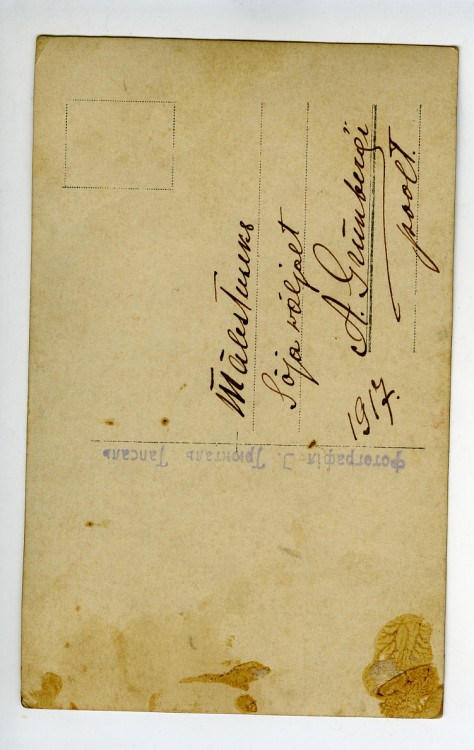 Mälestuseks
Sõja väljalt
A. Grünbergi
poolt.
1917.
Фотографія I. Грюнталь Гапсаль